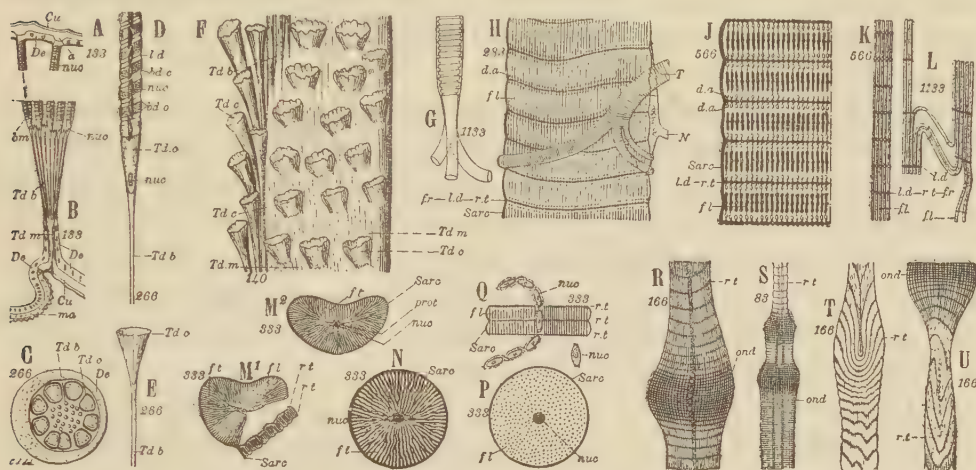 Cu
A
De
a
133
nuc
bm
nuc
Td b
B
Td m
133
De
De
Cu
ma
C
266
Td b
Td o
De
D
l d
bd c
nuc
bd o
Td o
nuc
Td b
266
E
Td o
266
Td b
F
Td b
Td c
Td c
Td m
Td m
Td o
140
G
1133
H
283
d.a
f l
T
N
fr-l.d-r.t
Sarc
J
566
d.a
d.a
Sarc
l.d-r.t
f l
K
566
L
1133
l.d
l.d-r.t-fr
fl
f l
M²
333
f t
Sarc
prot
nuc
M¹
333
f t
f l
r.t
Sarc
N
333
Sarc
nuc
f l
Q
nuc
333
f l
r.t
r.t
r.t
Sarc
nuc
P
333
Sarc
f l
nuc
R
166
r.t
ond
S
83
r.t
ond
T
166
r.t
U
ond
166
r.t